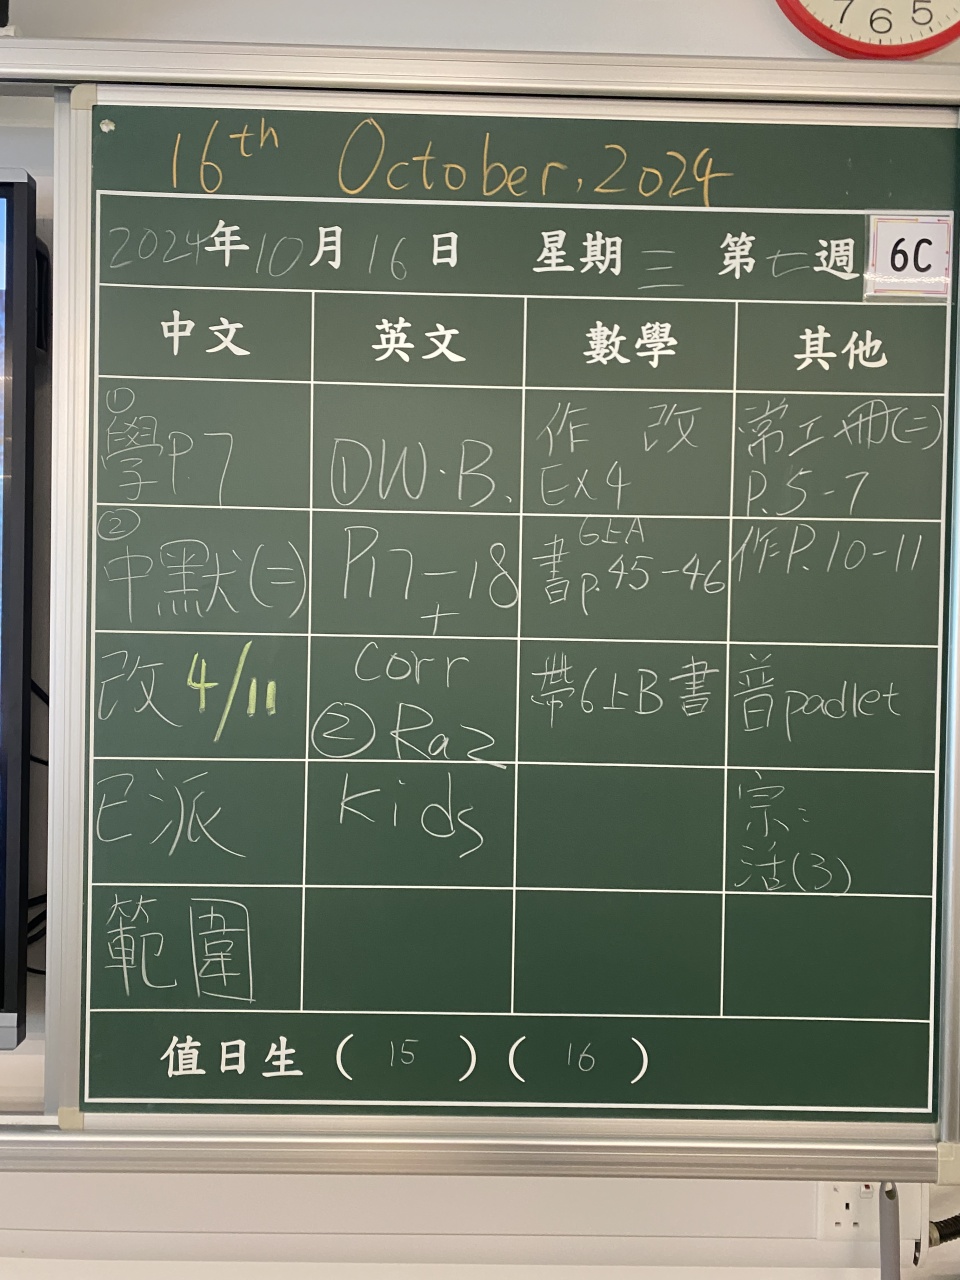 7 6 5
16th October, 2024
2024年10月16日 星期三 第七週 6C
中文 英文 數學 其他
①
學P.7
②
中默(二)
改 4/11
已派
範圍
①W.B.
P.17-18
+
corr
②Raz
kids
作 改
Ex 4
6上A
書p.45-46
帶6上B書
常工冊(二)
P.5-7
作P.10-11
普padlet
宗:
活(3)
值日生 ( 15 ) ( 16 )